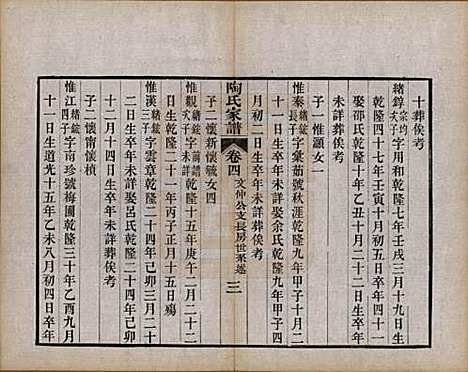 十葬俟考
緒錞宗均次子字用和乾隆七年壬戌三月十九日生
乾隆四十七年壬寅十一月二十二日生卒年
娶邵氏乾隆十年乙丑十月二十二日生卒年
未詳葬俟考
子一惟灝女一
惟秦緒錠長子字彙茹號秋涯乾隆九年甲子十一月
二十日生卒年未詳娶余氏乾隆九年甲子四
月初二日生卒年未詳葬俟考
陶氏家譜
卷四
文仲公支長房世系述
三
子二懷新懷毓女四
惟觀緒錠次子字甫瞻乾隆十五年庚午二月二十二
日生乾隆二十一年丙子正月十五日殤
惟漢緒錠三子字雲章乾隆二十四年己卯三月二十
二日生卒年未詳娶呂氏乾隆二十四年己卯
十二月十四日生卒年未詳葬俟考
子二懷甯懷楨
惟江緒錠四子字南珍號梅圃乾隆三十年乙酉九月
十一日生道光十五年乙未八月初四日卒年